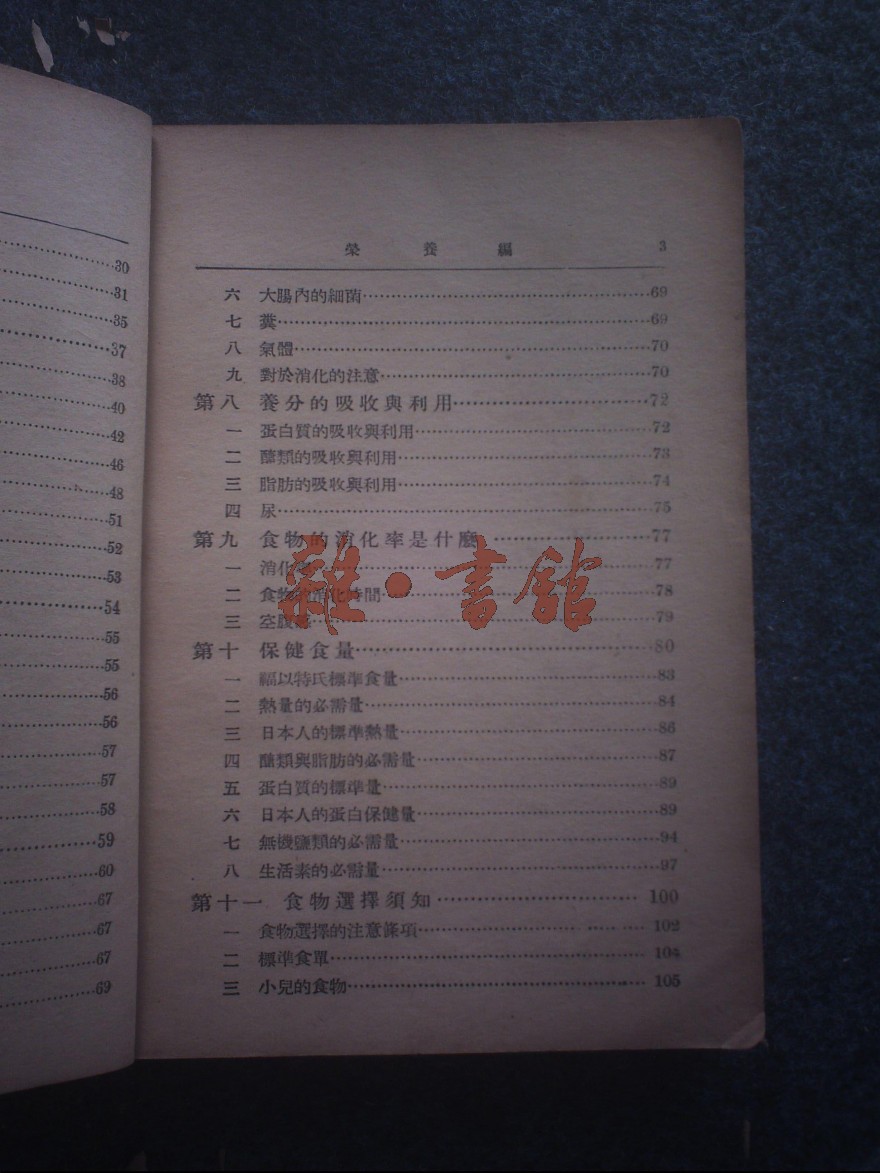 30
31
35
37
38
40
42
46
48
51
52
53
54
55
55
56
56
57
57
58
59
60
67
67
67
69
榮養編 3
六 大腸內的細菌 69
七 糞 69
八 氣體 70
九 對於消化的注意 70
第八 養分的吸收與利用 72
一 蛋白質的吸收與利用 72
二 醣類的吸收與利用 73
三 脂肪的吸收與利用 74
四 尿 75
第九 食物的消化率是什麼 77
一 消化率 77
二 食物的消化時間 78
三 空腹感 79
第十 保健食量 80
一 福以特氏標準食量 83
二 熱量的必需量 84
三 日本人的標準熱量 86
四 醣類與脂肪的必需量 87
五 蛋白質的標準量 89
六 日本人的蛋白保健量 89
七 無機鹽類的必需量 94
八 生活素的必需量 97
第十一 食物選擇須知 100
一 食物選擇的注意條項 102
二 標準食單 104
三 小兒的食物 105
雜·書館